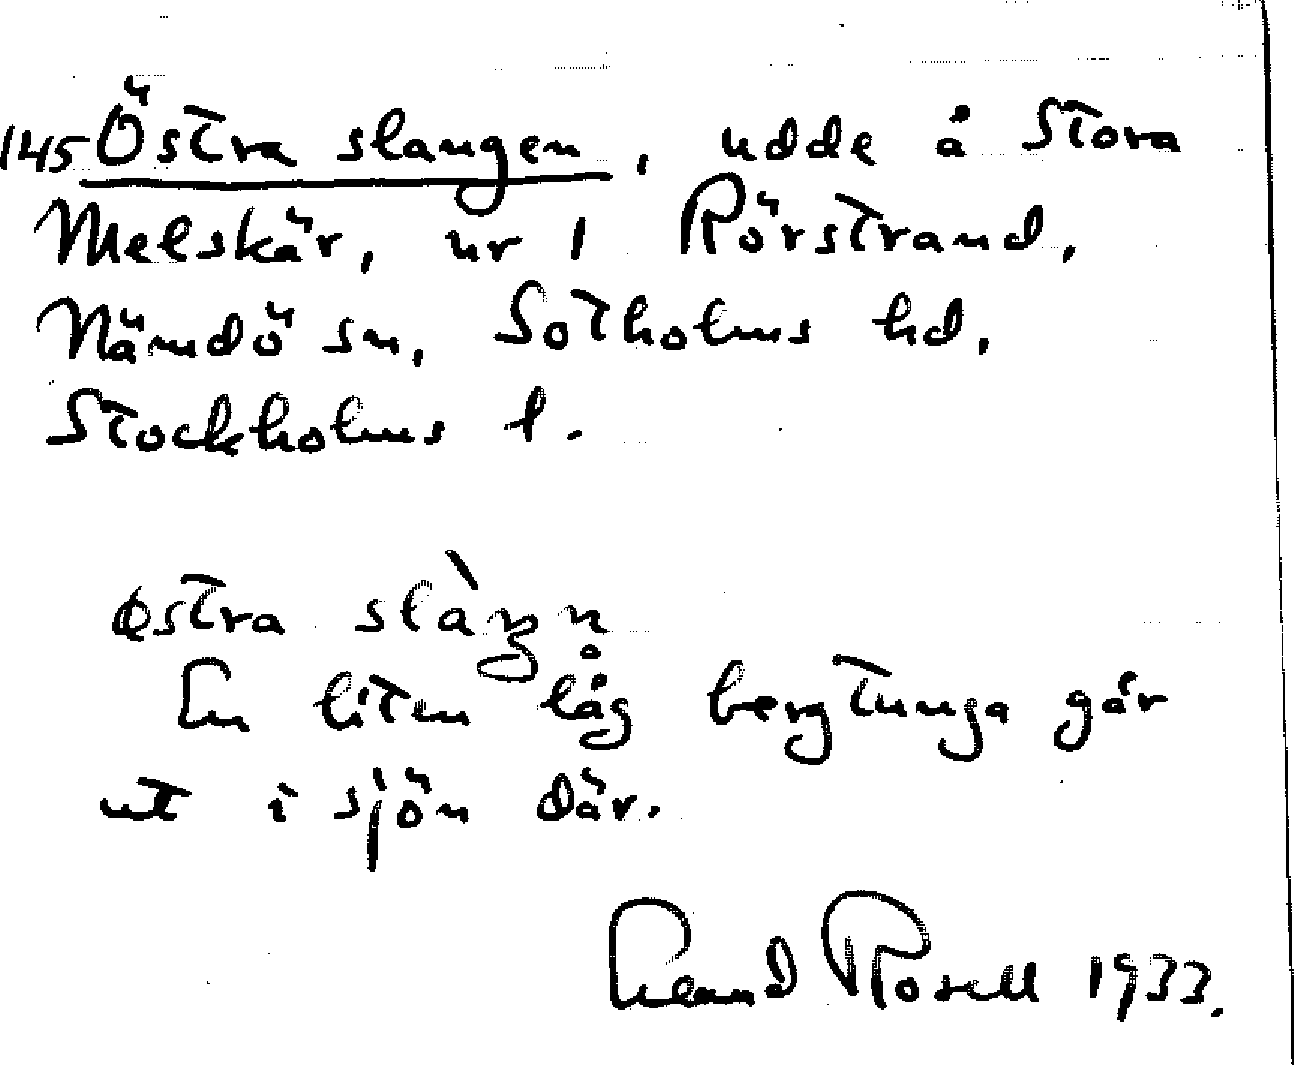 145 Östra slangen, udde å Stora
Melskär, nr 1 Rörstrand,
Nämdö sn, Sotholms hd,
Stockholms l.
østra slàŋn̥
En liten låg bergtunga går
ut i sjön där.
Rosell 1933.